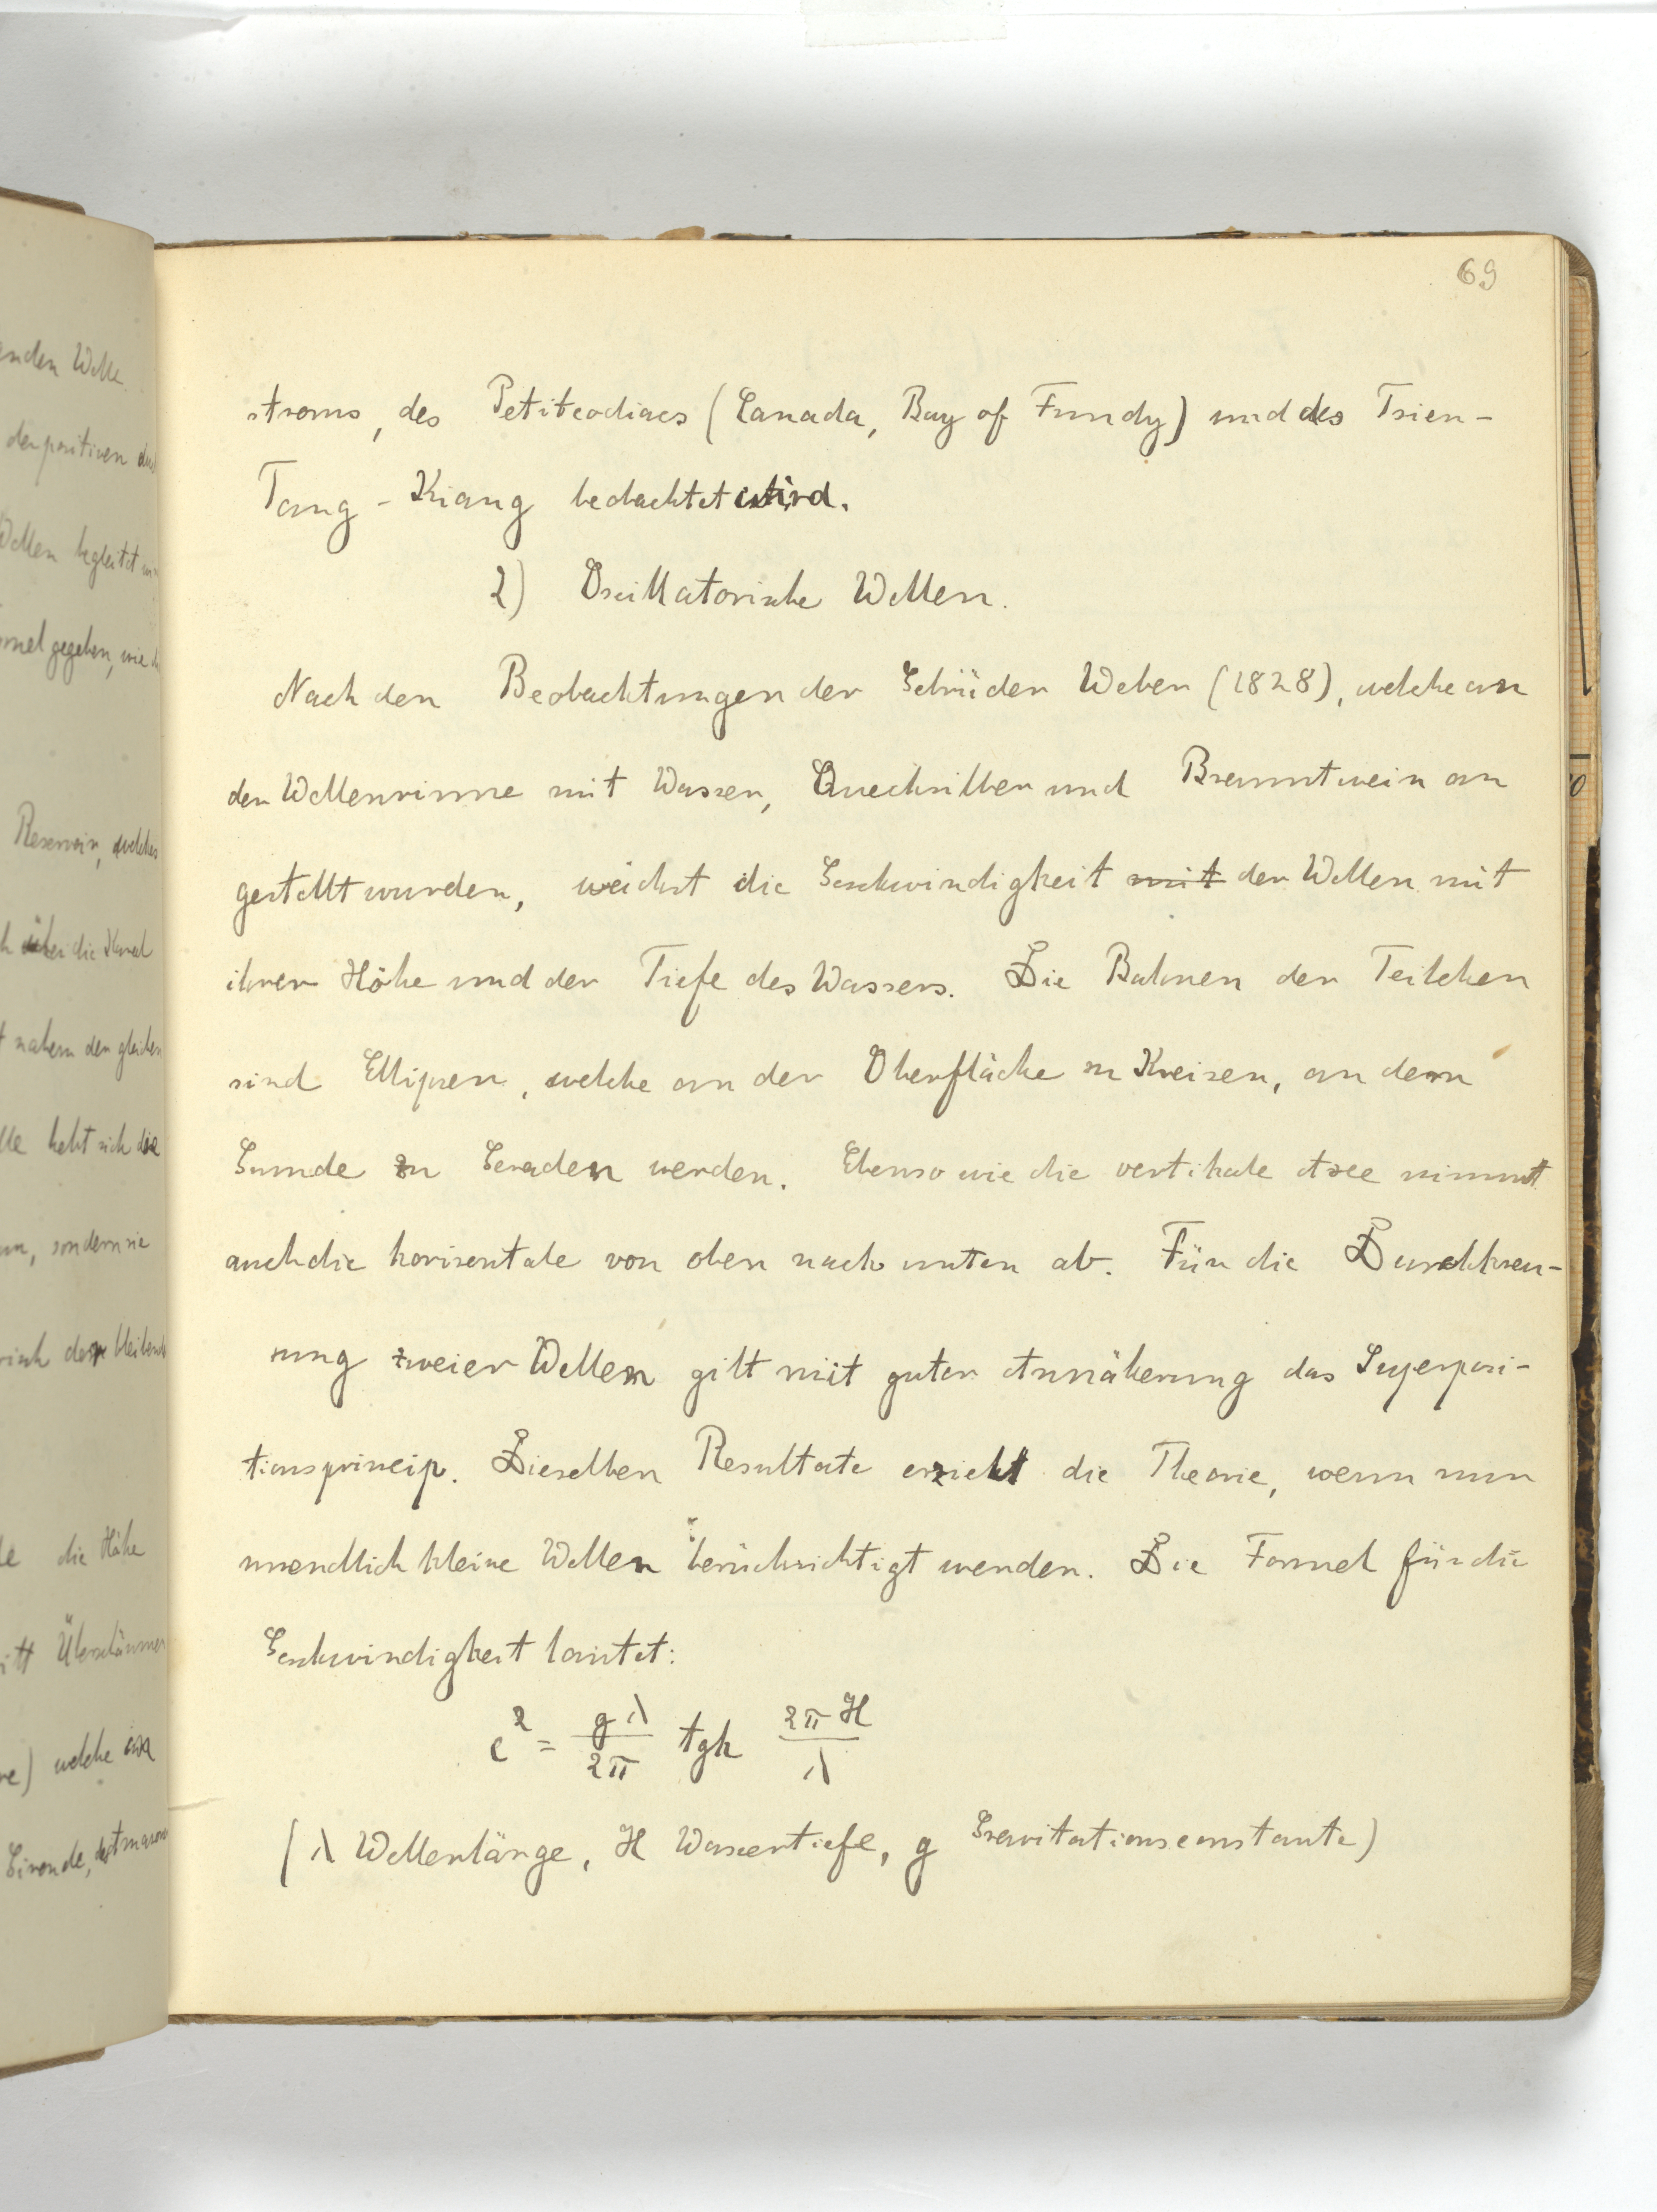 69
stroms, des Petitcodiacs (Canada, Bay of Fundy) und des Tsien-
Tang-Kiang beobachtet wird.
2) Oscillatorische Wellen.
Nach den Beobachtungen der Gebrüder Weber (1828), welche an
der Wellenrinne mit Wasser, Quecksilber und Branntwein an
gestellt wurden, wächst die Geschwindigkeit mit der Wellen mit
ihrer Höhe und der Tiefe des Wassers. Die Bahnen der Teilchen
sind Ellipsen, welche an der Oberfläche zu Kreisen, an dem
Grunde zu Geraden werden. Ebenso wie die vertikale Axe nimmt
auch die horizontale von oben nach unten ab. Für die Durchkreu-
zung zweier Wellen gilt mit guter Annäherung das Superposi-
tionsprincip. Dieselben Resultate erzielt die Theorie, wenn nun
unendlich kleine Wellen berücksichtigt werden. Die Formel für die
Geschwindigkeit lautet:
c² = gλ/2π tgh 2πH/λ
(λ Wellenlänge, H Wassertiefe, g Gravitationsconstante)
enden Welle.
der positiven
Wellen begleitet
gegeben, wie
Reservoir, welches
über die
nahezu den gleichen
hebt sich die
sondern sie
die Höhe
welche